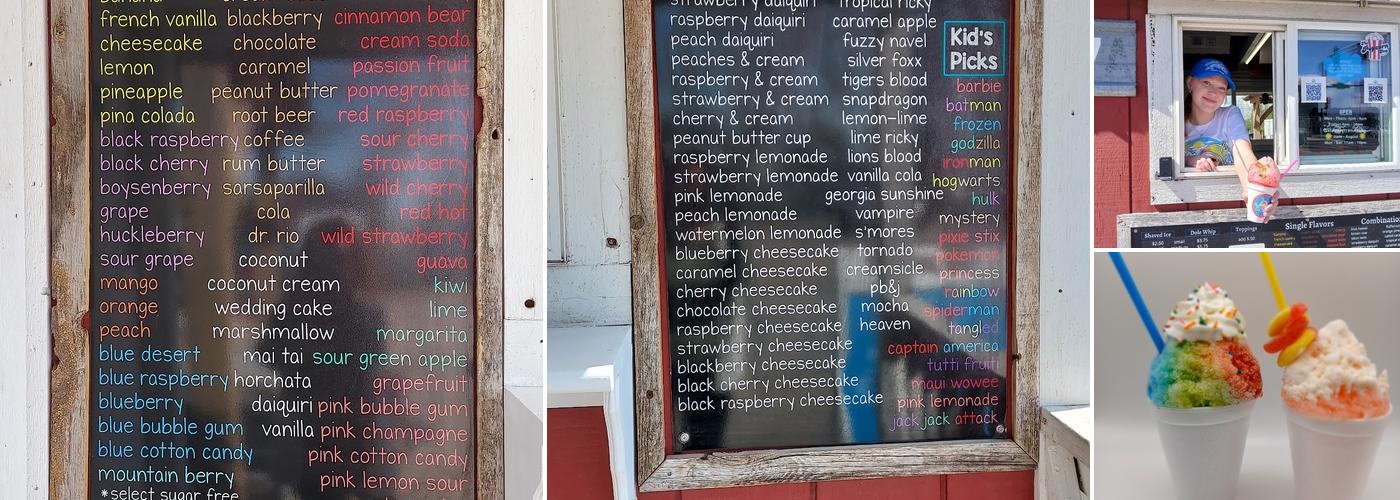 french vanilla blackberry cinnamon bear
cheesecake chocolate cream soda
lemon caramel passion fruit
pineapple peanut butter pomegranate
pina colada root beer red raspberry
black raspberry coffee sour cherry
black cherry rum butter strawberry
boysenberry sarsaparilla wild cherry
grape cola red hot
huckleberry dr. rio wild strawberry
sour grape coconut guava
mango coconut cream kiwi
orange wedding cake lime
peach marshmallow margarita
blue desert mai tai sour green apple
blue raspberry horchata grapefruit
blueberry daiquiri pink bubble gum
blue bubble gum vanilla pink champagne
blue cotton candy pink cotton candy
mountain berry pink lemon sour
*select sugar free
strawberry daiquiri tropical ricky
raspberry daiquiri caramel apple
peach daiquiri fuzzy navel
peaches & cream silver foxx
raspberry & cream tigers blood
strawberry & cream snapdragon
cherry & cream lemon-lime
peanut butter cup lime ricky
raspberry lemonade lions blood
strawberry lemonade vanilla cola
pink lemonade georgia sunshine
peach lemonade vampire
watermelon lemonade s'mores
blueberry cheesecake tornado
caramel cheesecake creamsicle
cherry cheesecake pb&j
chocolate cheesecake mocha
raspberry cheesecake heaven
strawberry cheesecake
blackberry cheesecake
black cherry cheesecake
black raspberry cheesecake
Kid's
Picks
barbie
batman
frozen
godzilla
ironman
hogwarts
hulk
mystery
pixie stix
pokemon
princess
rainbow
spiderman
tangled
captain america
tutti fruiti
maui wowee
pink lemonade
jack jack attack
OPEN
Shaved Ice Dole Whip Toppings Single Flavors
$2.50 small $3.75 add $.50